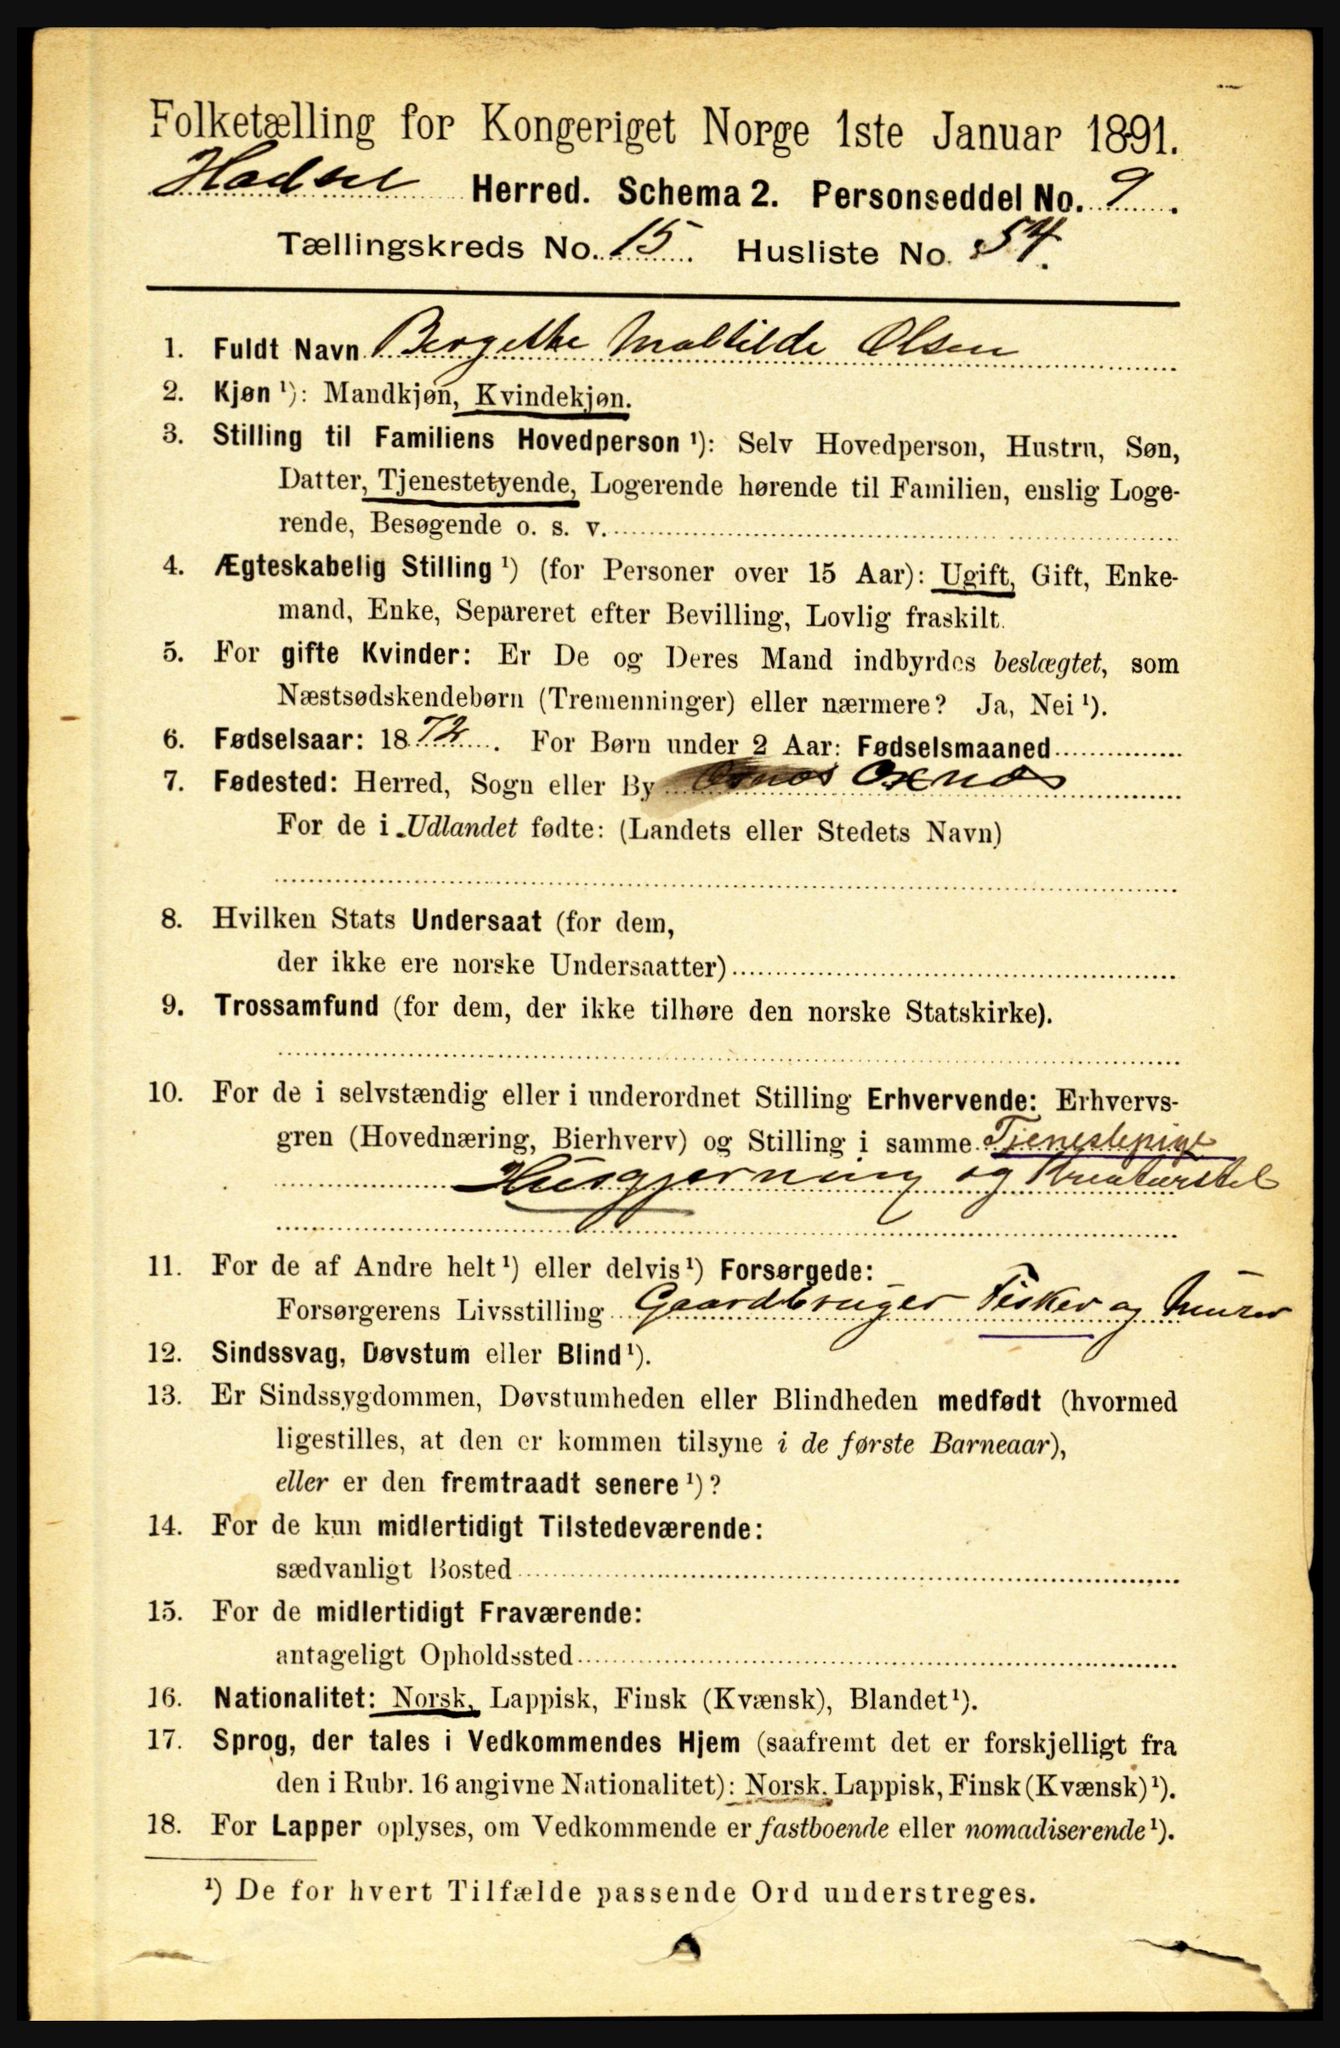 Folketælling for Kongeriget Norge 1ste Januar 1891.
Hadsel Herred. Schema 2. Personseddel No. 9.
Tællingskreds No. 15. Husliste No. 54.
1. Fuldt Navn Bergethe Mathilde Olsen
2. Kjøn ¹): Mandkjøn, Kvindekjøn.
3. Stilling til Familiens Hovedperson ¹): Selv Hovedperson, Hustru, Søn,
Datter, Tjenestetyende, Logerende hørende til Familien, enslig Loge-
rende, Besøgende o. s. v.
4. Ægteskabelig Stilling ¹) (for Personer over 15 Aar): Ugift, Gift, Enke-
mand, Enke, Separeret efter Bevilling, Lovlig fraskilt.
5. For gifte Kvinder: Er De og Deres Mand indbyrdes beslægtet, som
Næstsødskendebørn (Tremenninger) eller nærmere? Ja, Nei ¹).
6. Fødselsaar: 1872. For Børn under 2 Aar: Fødselsmaaned
7. Fødested: Herred, Sogn eller By Øxnes
For de i Udlandet fødte: (Landets eller Stedets Navn)
8. Hvilken Stats Undersaat (for dem,
der ikke ere norske Undersaatter)
9. Trossamfund (for dem, der ikke tilhøre den norske Statskirke).
10. For de i selvstændig eller i underordnet Stilling Erhvervende: Erhvervs-
gren (Hovednæring, Bierhverv) og Stilling i samme Tjenestepige
Husgjerning og Kreaturstel
11. For de af Andre helt ¹) eller delvis ¹) Forsørgede:
Forsørgerens Livsstilling Gaardbruger Fisker og Murer
12. Sindssvag, Døvstum eller Blind ¹).
13. Er Sindssygdommen, Døvstumheden eller Blindheden medfødt (hvormed
ligestilles, at den er kommen tilsyne i de første Barneaar),
eller er den fremtraadt senere ¹)?
14. For de kun midlertidigt Tilstedeværende:
sædvanligt Bosted
15. For de midlertidigt Fraværende:
antageligt Opholdssted
16. Nationalitet: Norsk, Lappisk, Finsk (Kvænsk), Blandet ¹).
17. Sprog, der tales i Vedkommendes Hjem (saafremt det er forskjelligt fra
den i Rubr. 16 angivne Nationalitet): Norsk. Lappisk, Finsk (Kvænsk) ¹).
18. For Lapper oplyses, om Vedkommende er fastboende eller nomadiserende ¹).
¹) De for hvert Tilfælde passende Ord understreges.